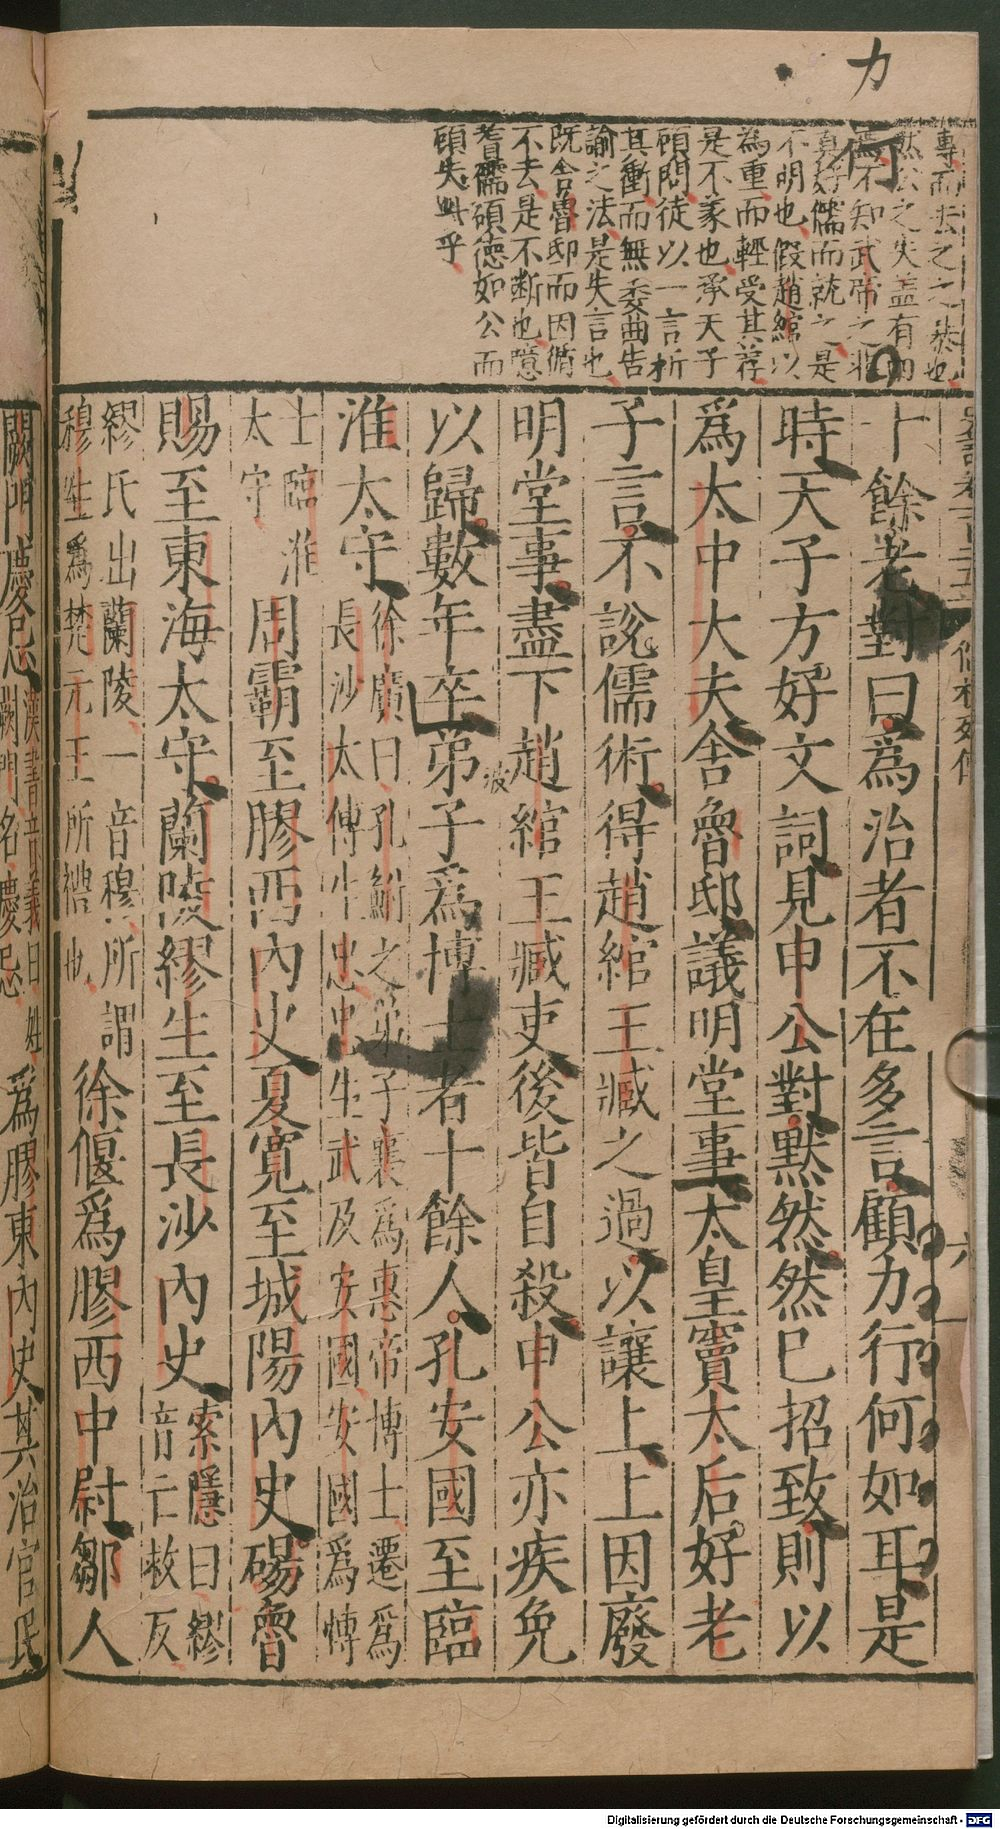 力
行
專而去之之恭也
然公之失蓋有四
焉不知武帝之非
真好儒而就之是
不明也假趙綰以
為重而輕受其荐
是不豪也承天子
顧問徒以一言折
其衝而無委曲告
諭之法是失言也
既舍魯邸而因循
不去是不斷也噫
耆儒碩德如公而
顧失此乎
十餘老對曰爲治者不在多言顧力行何如耳是
時天子方好文詞見申公對默然然已招致則以
爲太中大夫舍魯邸議明堂事太皇竇太后好老
子言不說儒術得趙綰王臧之過以讓上上因廢
明堂事盡下趙綰王臧吏後皆自殺申公亦疾免
以歸數年卒弟子爲博士者十餘人孔安國至臨
淮太守
徐廣曰孔鮒之弟子襄爲惠帝博士遷爲
長沙太傅生忠忠生武及安國安國爲博
士臨淮
太守
周霸至膠西內史夏寬至城陽內史碭魯
賜至東海太守蘭陵繆生至長沙內史
索隱曰繆
音亡救反
繆氏出蘭陵一音穆所謂
穆生爲楚元王所禮也
徐偃爲膠西中尉鄒人
闕門慶忌
漢書音義曰姓
闕門名慶忌
爲膠東內史其治官民
六
Digitalisierung gefördert durch die Deutsche Forschungsgemeinschaft - DFG